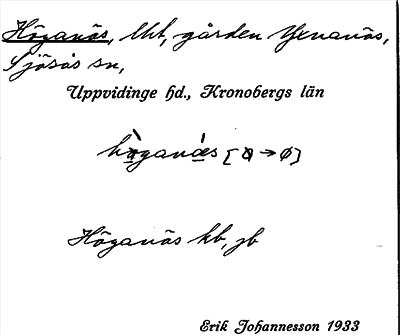 Höganäs, lht, gården Yxnanäs,
Sjösås sn,
Uppvidinge hd., Kronobergs län
Höganäs kb, jb
Erik Johannesson 1933